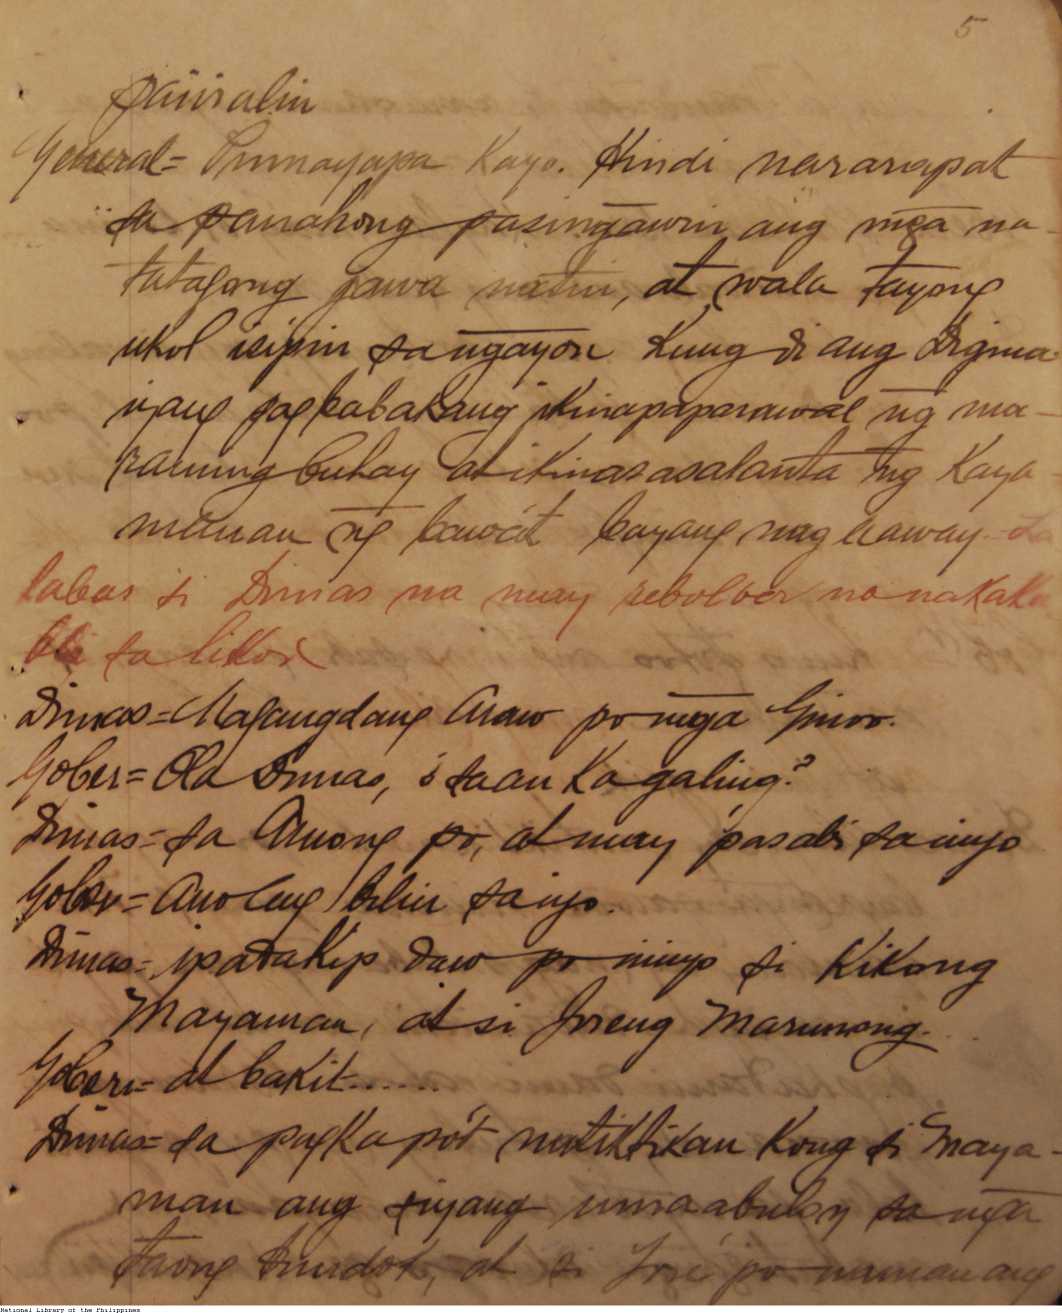 5
pairalin
General= Pumayapa Kayo. Hindi nararapat
sa panahong pasingawin ang mga na-
tatagong gawa natin, at wala tayong
ukol isipin sa ngayon Kung di ang Digma
iyang pagbabakang ikinapaparawal ng ma-
raming buhay at ikinasasalanta ng Kaya-
manan ng bawát bayang nag aaway.- La
labas si Dimas na may rebolber na nakaka
sa likod
Dimas= Magangdang Araw po mga Ginoo.
Gober= Ola Dimas, ó saan Ka galing?
Dimas= sa po, at may pasabi sa inyo
Gober= Ano ang bilin sa iyo.
Dimas= ipadakip daw po ninyo si Kikong
Mayaman, at si Joseng Marunong.
Gober= at bakit......
Dimas= sa pagka pó't natiktikan Kong si Maya-
man ang siyang umaabuloy sa mga
taong bundok, at si José po naman ang
National Library of the Philippines